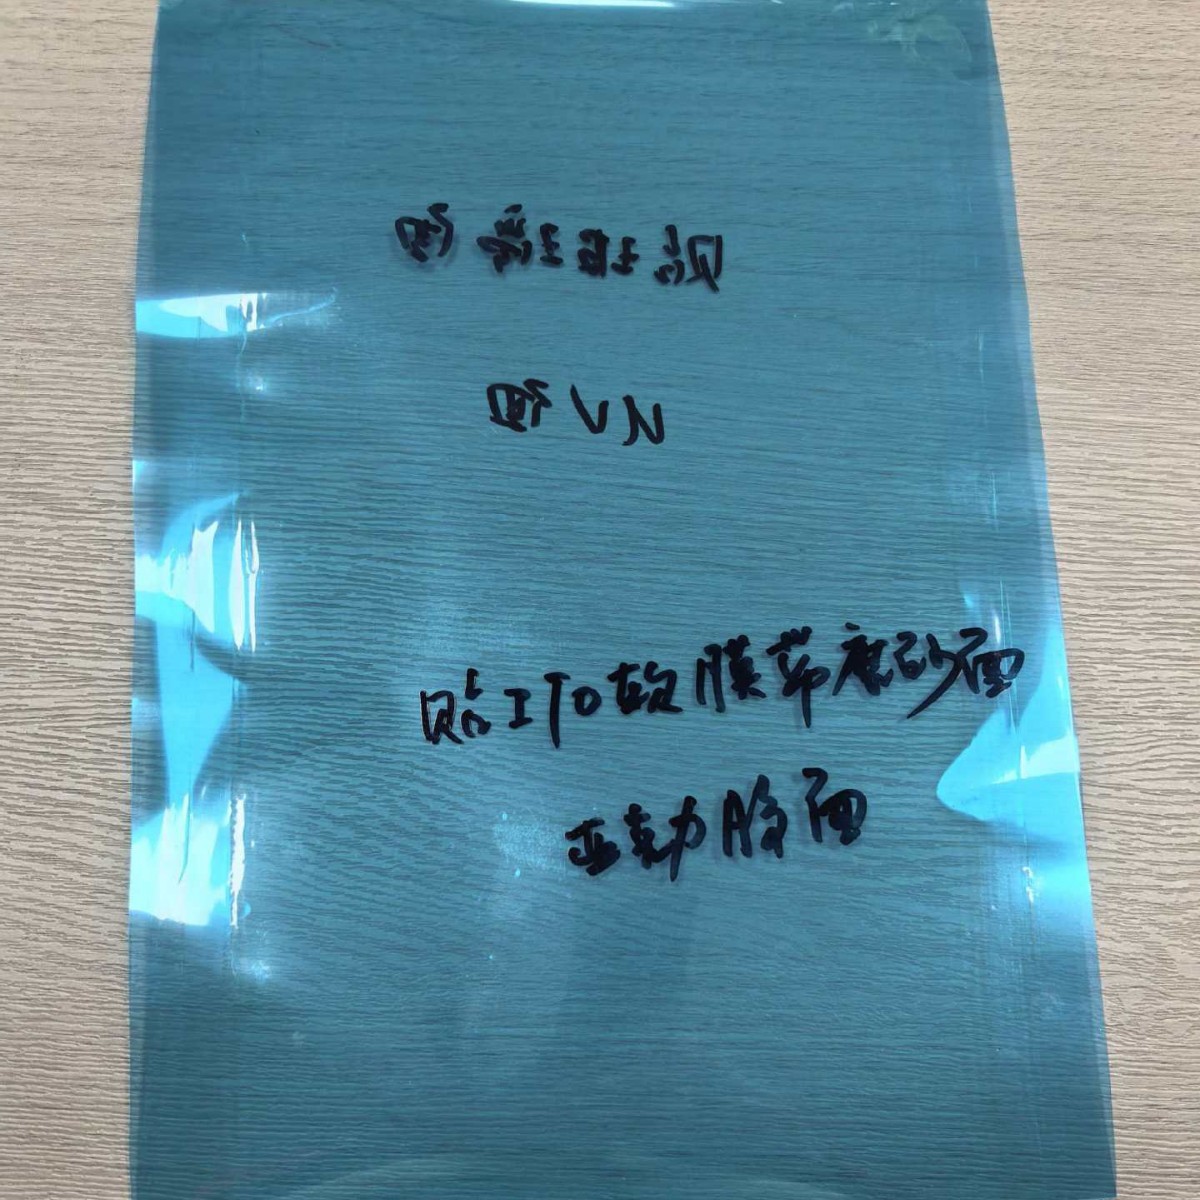 贴玻璃面
UV面
贴ITO软膜带磨砂面
亚克力胶面